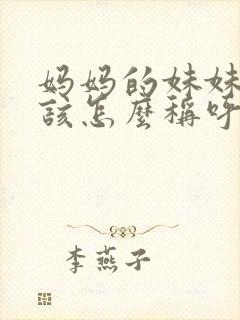 妈妈的妹妹
該怎麼稱呼
李燕子